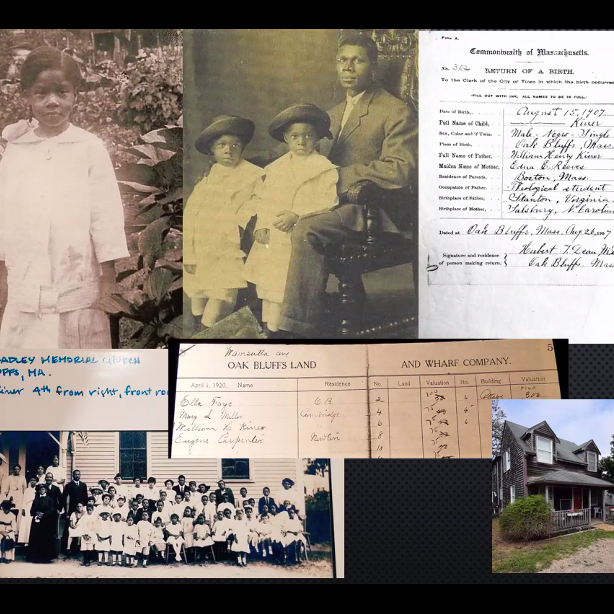 Form A.
Commonwealth of Massachusetts.
No. 362
RETURN OF A BIRTH.
To the Clerk of the City or Town in which the birth occurred
Date of Birth, August 15, 1907
Full Name of Child, Kiner
Sex, Color and if Twin, Male - Negro - Single
Place of Birth, Oak Bluffs, Mass.
Full Name of Father, William Henry Kiner
Maiden Name of Mother, Edna E. Reeves
Residence of Parents, Boston, Mass.
Occupation of Father, Theological student
Birthplace of Father, Stanton, Virginia
Birthplace of Mother, Salsbury, N. Carolin
Dated at Oak Bluffs, Mass, Aug 26 1907
Signature and residence
of person making return,
Oak Bluffs, Mass
ADLEY MEMORIAL CHURCH
UFFS, MA.
iner 4th from right, front ro
5
OAK BLUFFS LAND AND WHARF COMPANY.
April 1, 1920. Name Residence No. Land Valuation No. Building Valuation
Ella Faye 2
Mary L. Miller Cambridge 4
William H. Kiner 6
Eugene Carpenter Newton 8
10